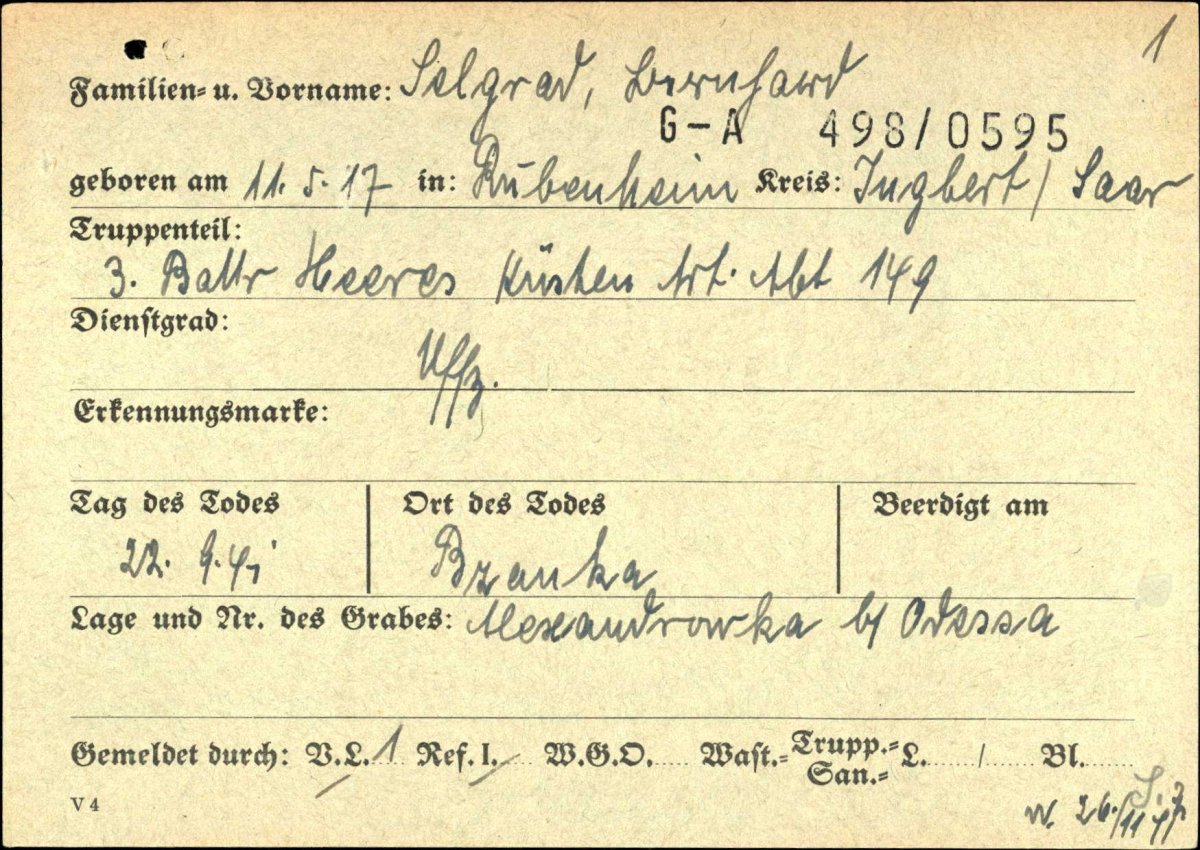 1
Familien- u. Vorname: Selgrad, Bernhard
G-A 498/0595
geboren am 11.5.17 in: Rubenheim Kreis: Ingbert / Saar
Truppenteil:
3. Battr Heeres Küsten Art. Abt 149
Dienstgrad:
Uffz.
Erkennungsmarke:
Tag des Todes Ort des Todes Beerdigt am
22. 9. 41
Lage und Nr. des Grabes: Alexandrowka b/ Odessa
Gemeldet durch: V.L. 1 Ref. I. W.G.O. Wast.- Trupp.- San.- L. / Bl.
V 4
26./11